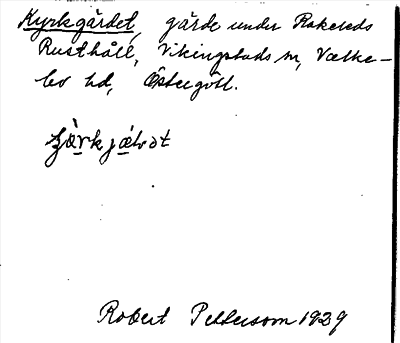 Kyrkgärdet, gärde under Rakereds
Rusthåll, Vikingstads sn, Valke-
bo hd, Östergötl.
Robert Pettersson 1929